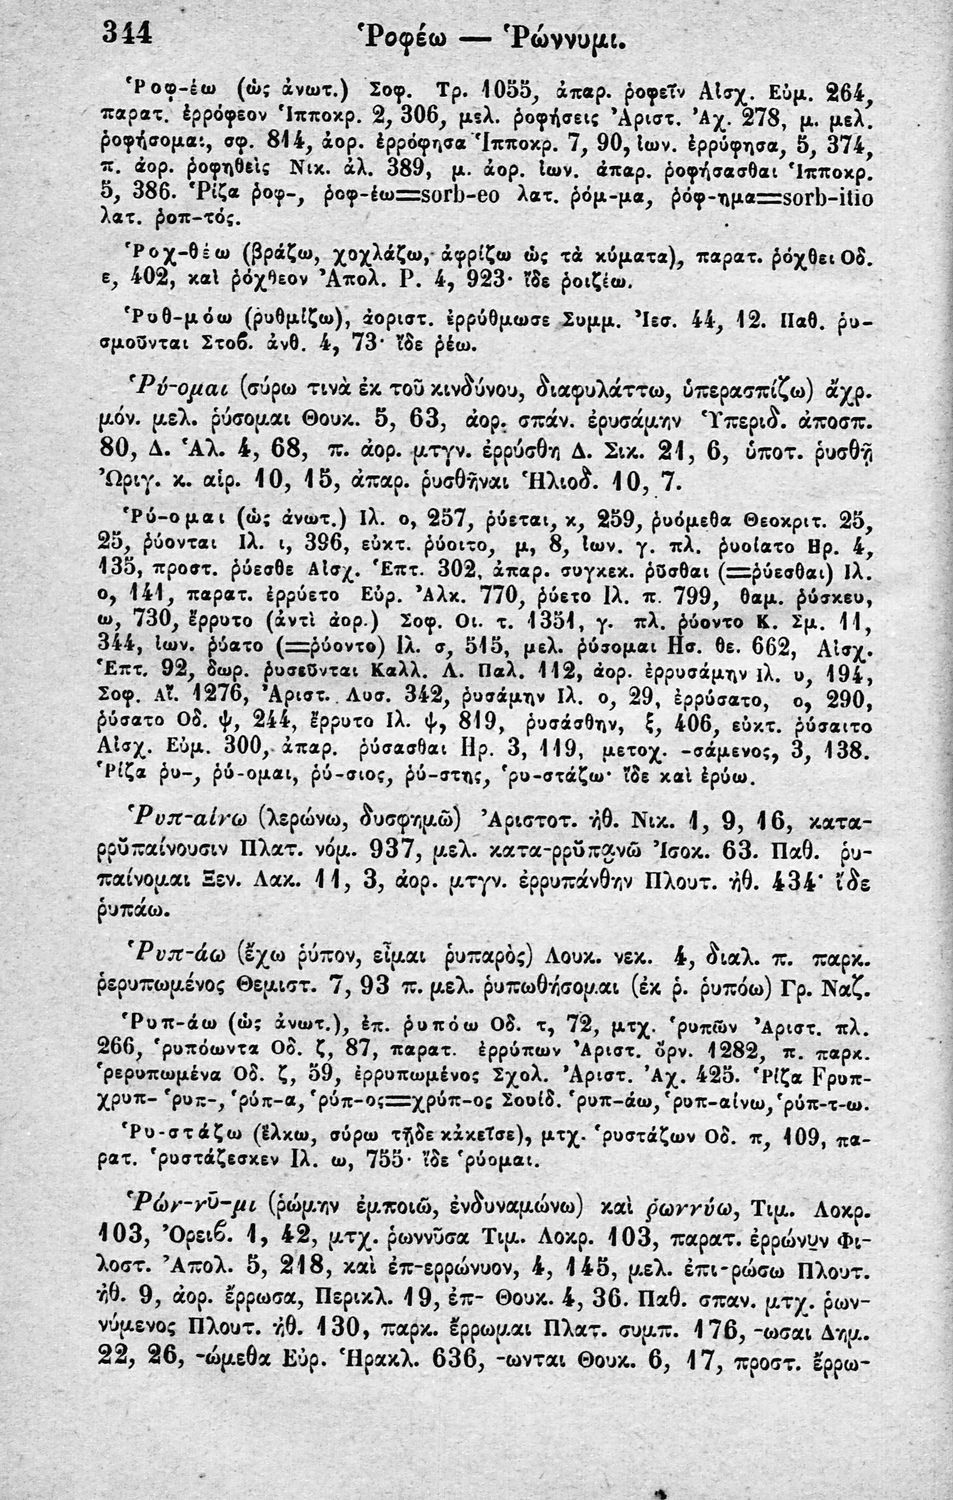 344 Ῥοφέω — Ῥώννυμι.
Ῥοφ-έω (ὡς ἀνωτ.) Σοφ. Τρ. 1055, ἀπαρ. ῥοφεῖν Αἰσχ. Εὐμ. 264,
παρατ. ἐρρόφεον Ἱπποκρ. 2, 306, μελ. ῥοφήσεις Ἀριστ. Ἀχ. 278, μ. μελ.
ῥοφήσομαι, σφ. 814, ἀορ. ἐρρόφησα Ἱπποκρ. 7, 90, ἰων. ἐρρύφησα, 5, 374,
π. ἀορ. ῥοφηθεὶς Νικ. ἀλ. 389, μ. ἀορ. ἰων. ἀπαρ. ῥοφήσασθαι Ἱπποκρ.
5, 386. Ῥίζα ῥοφ-, ῥοφ-έω=sorb-eo λατ. ῥόμ-μα, ῥόφ-ημα=sorb-itio
λατ. ῥοπ-τός.
Ῥοχ-θέω (βράζω, χοχλάζω, ἀφρίζω ὡς τὰ κύματα), παρατ. ῥόχθει Οδ.
ε, 402, καὶ ῥόχθεον Ἀπολ. Ρ. 4, 923· ἴδε ῥοιζέω.
Ῥυθ-μόω (ῥυθμίζω), ἀοριστ. ἐρρύθμωσε Συμμ. Ἰεσ. 44, 12. Παθ. ῥυ-
σμοῦνται Στοβ. ἀνθ. 4, 73· ἴδε ῥέω.
Ῥύ-ομαι (σύρω τινὰ ἐκ τοῦ κινδύνου, διαφυλάττω, ὑπερασπίζω) ἄχρ.
μόν. μελ. ῥύσομαι Θουκ. 5, 63, ἀορ. σπάν. ἐρυσάμην Ὑπεριδ. ἀποσπ.
80, Δ. Ἁλ. 4, 68, π. ἀορ. μτγν. ἐρρύσθη Δ. Σικ. 21, 6, ὑποτ. ῥυσθῇ
Ὠριγ. κ. αἱρ. 10, 15, ἀπαρ. ῥυσθῆναι Ἡλιοδ. 10, 7.
Ῥύ-ομαι (ὡς ἀνωτ.) Ιλ. ο, 257, ῥύεται, κ, 259, ῥυόμεθα Θεοκριτ. 25,
25, ῥύονται Ιλ. ι, 396, εὐκτ. ῥύοιτο, μ, 8, ἰων. γ. πλ. ῥυοίατο Ηρ. 4,
135, προστ. ῥύεσθε Αἰσχ. Ἑπτ. 302, ἀπαρ. συγκεκ. ῥῦσθαι (=ῥύεσθαι) Ιλ.
ο, 141, παρατ. ἐρρύετο Εὐρ. Ἀλκ. 770, ῥύετο Ιλ. π. 799, θαμ. ῥύσκευ,
ω, 730, ἔρρυτο (ἀντὶ ἀορ.) Σοφ. Οι. τ. 1351, γ. πλ. ῥύοντο Κ. Σμ. 11,
344, ἰων. ῥύατο (=ῥύοντο) Ιλ. σ, 515, μελ. ῥύσομαι Ησ. θε. 662, Αἰσχ.
Ἑπτ. 92, δωρ. ῥυσεῦνται Καλλ. Λ. Παλ. 112, ἀορ. ἐρρυσάμην Ιλ. υ, 194,
Σοφ. Αἴ. 1276, Ἀριστ. Λυσ. 342, ῥυσάμην Ιλ. ο, 29, ἐρρύσατο, ο, 290,
ῥύσατο Οδ. ψ, 244, ἔρρυτο Ιλ. ψ, 819, ῥυσάσθην, ξ, 406, εὐκτ. ῥύσαιτο
Αἰσχ. Εὐμ. 300, ἀπαρ. ῥύσασθαι Ηρ. 3, 119, μετοχ. -σάμενος, 3, 138.
Ῥίζα ῥυ-, ῥύ-ομαι, ῥύ-σιος, ῥύ-στης, ῥυ-στάζω· ἴδε καὶ ἐρύω.
Ῥυπ-αίνω (λερώνω, δυσφημῶ) Ἀριστοτ. ἠθ. Νικ. 1, 9, 16, κατα-
ρρῠπαίνουσιν Πλατ. νόμ. 937, μελ. κατα-ρρῠπᾰνῶ Ἰσοκ. 63. Παθ. ῥυ-
παίνομαι Ξεν. Λακ. 11, 3, ἀορ. μτγν. ἐρρυπάνθην Πλουτ. ἠθ. 434· ἴδε
ῥυπάω.
Ῥυπ-άω (ἔχω ῥύπον, εἶμαι ῥυπαρὸς) Λουκ. νεκ. 4, διαλ. π. παρκ.
ῥερυπωμένος Θεμιστ. 7, 93 π. μελ. ῥυπωθήσομαι (ἐκ ῥ. ῥυπόω) Γρ. Ναζ.
Ῥυπ-άω (ὡς ἀνωτ.), ἐπ. ῥυπόω Οδ. τ, 72, μτχ. ῥυπῶν Ἀριστ. πλ.
266, ῥυπόωντα Οδ. ζ, 87, παρατ. ἐρρύπων Ἀριστ. ὄρν. 1282, π. παρκ.
ῥερυπωμένα Οδ. ζ, 59, ἐρρυπωμένος Σχολ. Ἀριστ. Ἀχ. 425. Ῥίζα Fρυπ-
χρυπ- ῥυπ-, ῥύπ-α, ῥύπ-ος=χρύπ-ος Σουίδ. ῥυπ-άω, ῥυπ-αίνω, ῥύπ-τ-ω.
Ῥυ-στάζω (ἕλκω, σύρω τῇδε κἀκεῖσε), μτχ. ῥυστάζων Οδ. π, 109, πα-
ρατ. ῥυστάζεσκεν Ιλ. ω, 755· ἴδε ῥύομαι.
Ῥών-νῡ-μι (ῥώμην ἐμποιῶ, ἐνδυναμώνω) καὶ ῥωννύω, Τιμ. Λοκρ.
103, Ὀρειβ. 1, 42, μτχ. ῥωννῦσα Τιμ. Λοκρ. 103, παρατ. ἐρρώνυν Φι-
λοστ. Ἀπολ. 5, 218, καὶ ἐπ-ερρώνυον, 4, 145, μελ. ἐπι-ρώσω Πλουτ.
ἠθ. 9, ἀορ. ἔρρωσα, Περικλ. 19, ἐπ- Θουκ. 4, 36. Παθ. σπαν. μτχ. ῥων-
νύμενος Πλουτ. ἠθ. 130, παρκ. ἔρρωμαι Πλατ. συμπ. 176, -ωσαι Δημ.
22, 26, -ώμεθα Εὐρ. Ἡρακλ. 636, -ωνται Θουκ. 6, 17, προστ. ἔρρω-